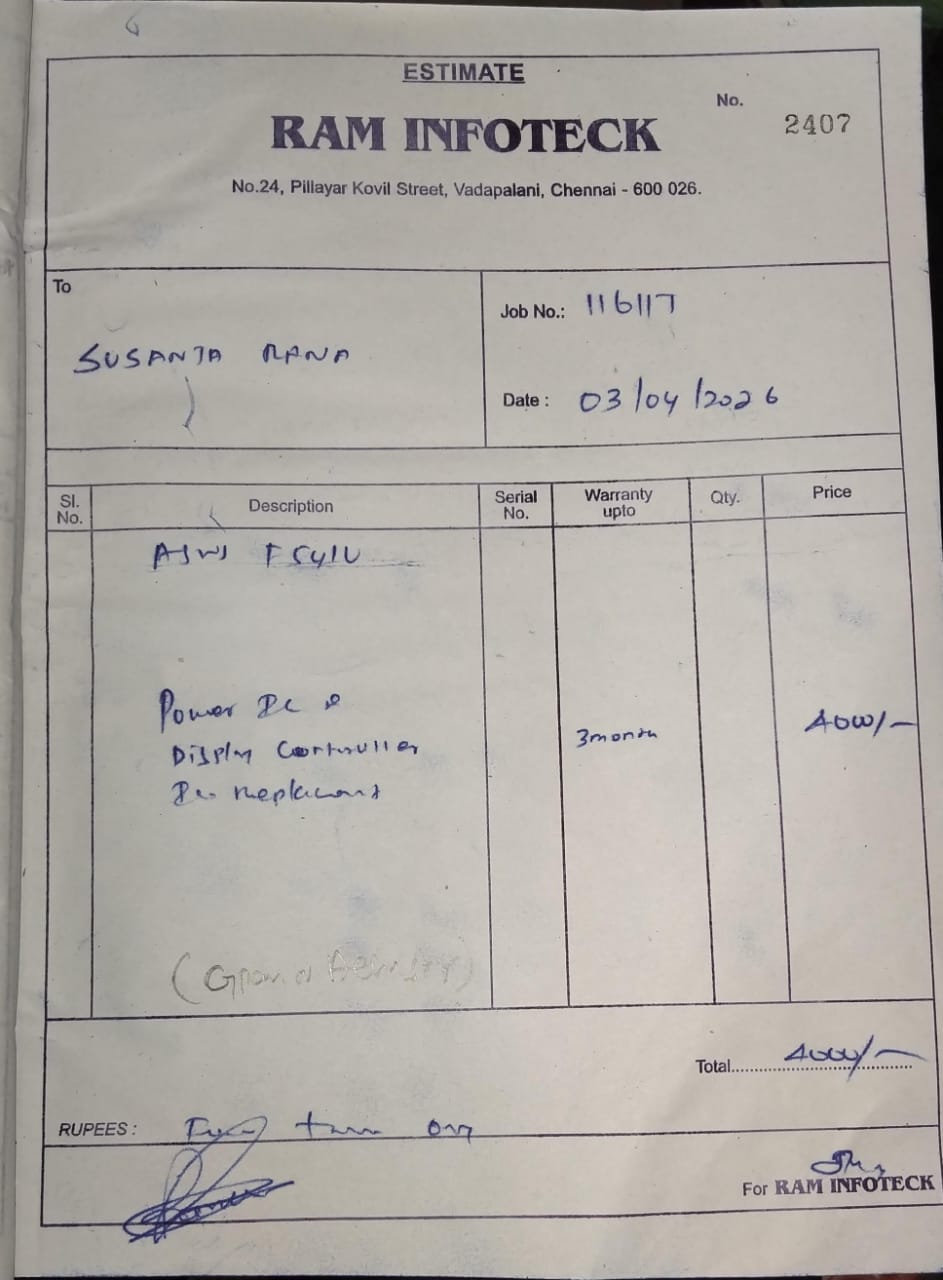 ESTIMATE
No.
2407
RAM INFOTECK
No.24, Pillayar Kovil Street, Vadapalani, Chennai - 600 026.
To
SUSANTA RANA
Job No.: 116117
Date : 03/04/2026
Sl. No. Description Serial No. Warranty upto Qty. Price
F541U
Power Ic &
Display Controller
Ic Replacement
3 month
4000/-
Total 4000/-
RUPEES :
For RAM INFOTECK